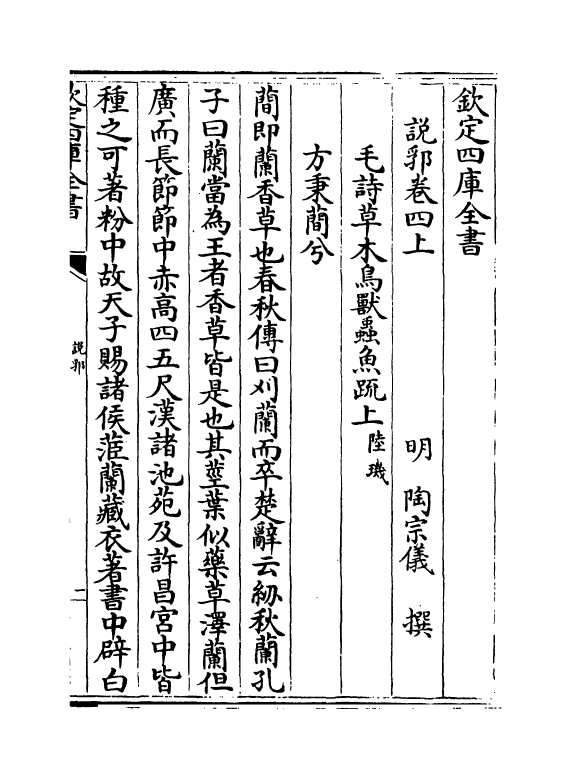 欽定四庫全書
説郛卷四上
明 陶宗儀 撰
毛詩草木鳥獸蟲魚疏上 陸璣
方秉蕑兮
蕑即蘭香草也春秋傳曰刈蘭而卒楚辭云紉秋蘭孔
子曰蘭當為王者香草皆是也其莖葉似藥草澤蘭但
廣而長節節中赤高四五尺漢諸池苑及許昌宮中皆
種之可著粉中故天子賜諸侯茝蘭藏衣著書中辟白
欽定四庫全書
説郛
二